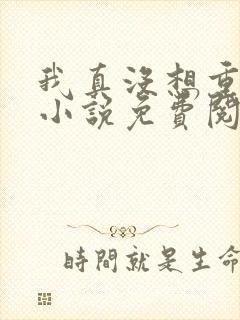 我真没想重
小説免費閱
時間就是生命